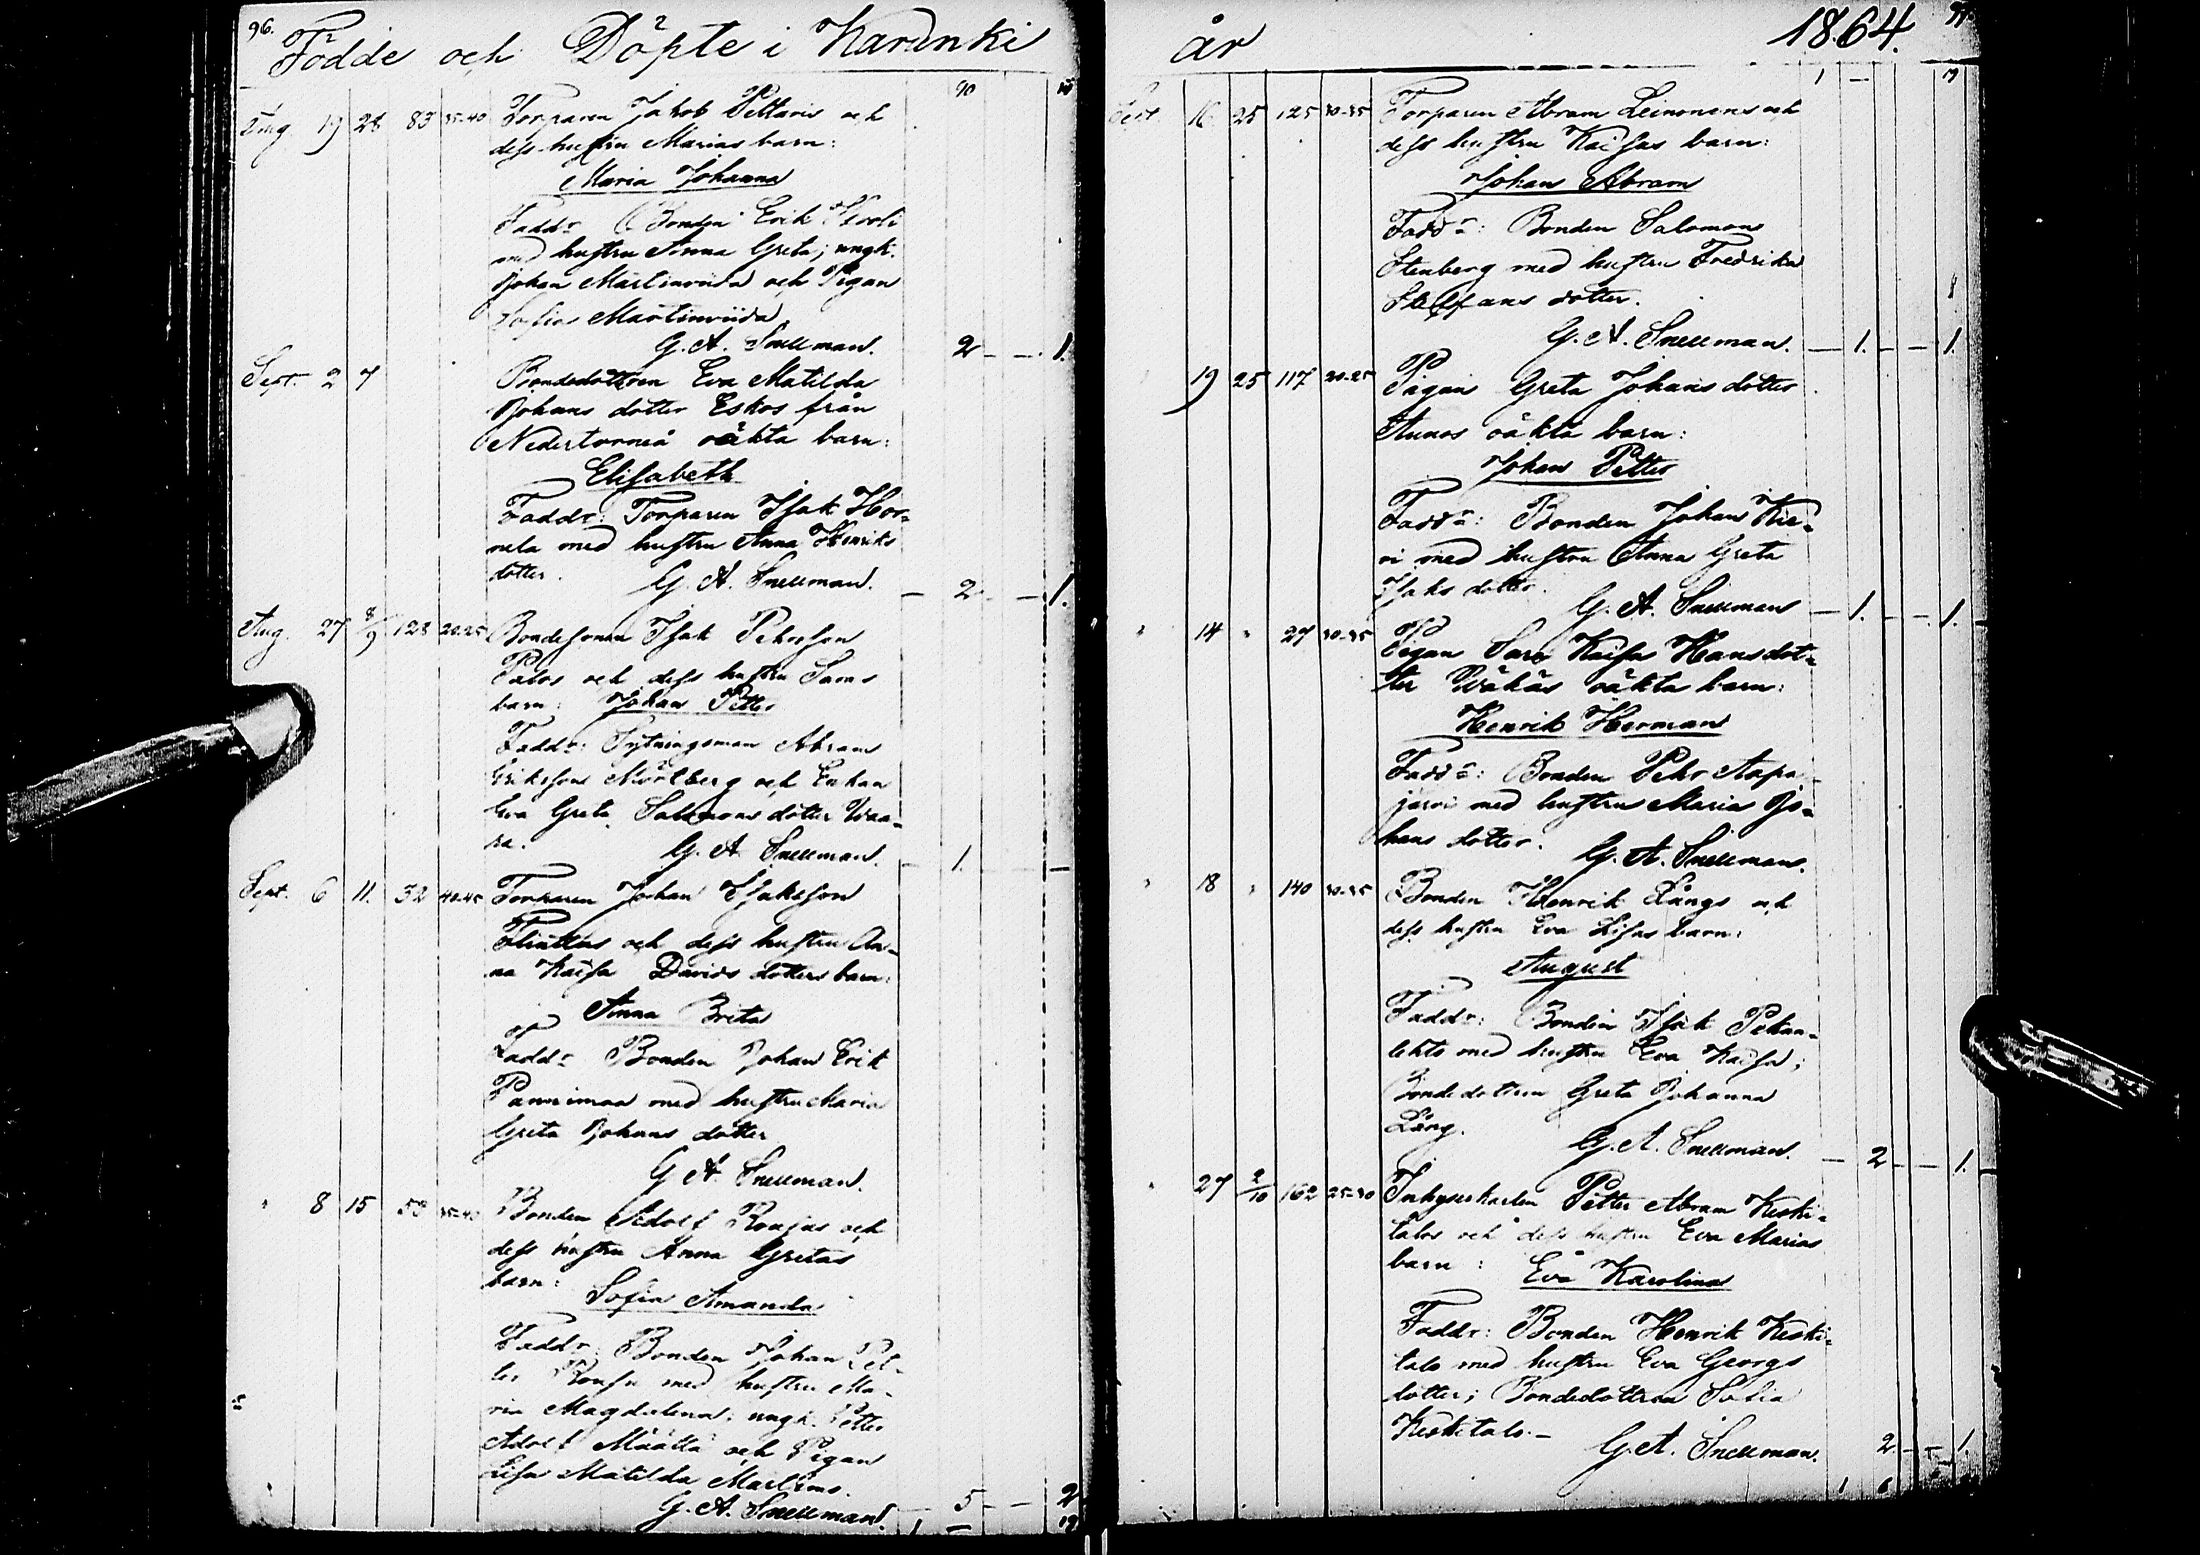 96.
Födde och Döpte i Karunki
90
Aug. 19 28 83 35-40 Torparen Jakob Pettaris och
dess hustru Marias barn:
Maria Johanna
Faddr Bonden Erik
med hustru Anna Greta; ungk.
Johan Martinviida och Pigan
Sofia Martinviida
G. A. Snellman. 2 — — 1.
Sept. 2 7 Bondedottren Eva Matilda
Johans dotter Eskos från
Nedertorneå oäkta barn:
Elisabeth
Faddr: Torparen Isak Hor-
nela med hustru Anna Henriks
dotter. G. A. Snellman. — 2 — — 1.
Aug. 27 8/9 128 20-25 Bondesonen Isak Pehrsson
Palos och dess hustru Saras
barn: Johan Petter
Faddr: Sytningsman Abram
Eriksson Mörtberg och Enkan
Eva Greta Salomons dotter Waa-
ra. G. A. Snellman. — 1. —
Sept. 6 11. 32 40-45 Torparen Johan Isaksson
och dess hustru An-
na Kaisa Davids dotters barn:
Anna Brita
Faddr Bonden Johan Erik
med hustru Maria
Greta Johans dotter
G. A. Snellman.
" 8 15 53 35-40 Bonden Adolf Ronjus och
dess hustru Anna Gretas
barn: Sofia Amanda
Faddr: Bonden Johan Pet-
ter med hustru Ma-
ria Magdalena; ungk. Petter
Adolf Määttä och Pigan
Lisa Matilda Martims.
G. A. Snellman. — 5 — — 2
1 — 19
år 1864. 97.
1 —
Sept 16 25 125 30-35 Torparen Abram Leinonens och
dess hustru Kaisas barn:
Johan Abram
Faddr: Bonden Salomon
Stenberg med hustru Fredrika
Staffans dotter.
G. A. Snellman. — 1. — — 1.
19 25 117 20-25 Pigan Greta Johans dotter
Aunos oäkta barn:
Johan Petter
Faddr: Bonden Johan Kie-
ri med hustru Anna Greta
Isaks dotter.
G. A. Snellman — 1. — — 1.
" 14 " 27 30-35 Pigan Sara Kaisa Hansdot-
ter Wähäs oäkta barn:
Henrik Herman
Faddr: Bonden Pehr Aapa-
järvi med hustru Maria Jo-
hans dotter. G. A. Snellman.
" 18 " 140 30-35 Bonden Henrik Längs och
dess hustru Eva Lisas barn:
August
Faddr: Bonden Isak Pekan-
lehto med hustru Eva Kaisa;
Bondedottren Greta Johanna
Läng. G. A. Snellman. — 2 — — 1.
" 27 2/10 162 25-30 Inhyseskarlen Petter Abram Keski-
talos och dess hustru Eva Marias
barn: Eva Karolina
Faddr: Bonden Henrik Keski-
talo med hustru Eva Georgs
dotter; Bondedottren Sofia
Keskitalo.—
G. A. Snellman. 2. — — 1.
1 6